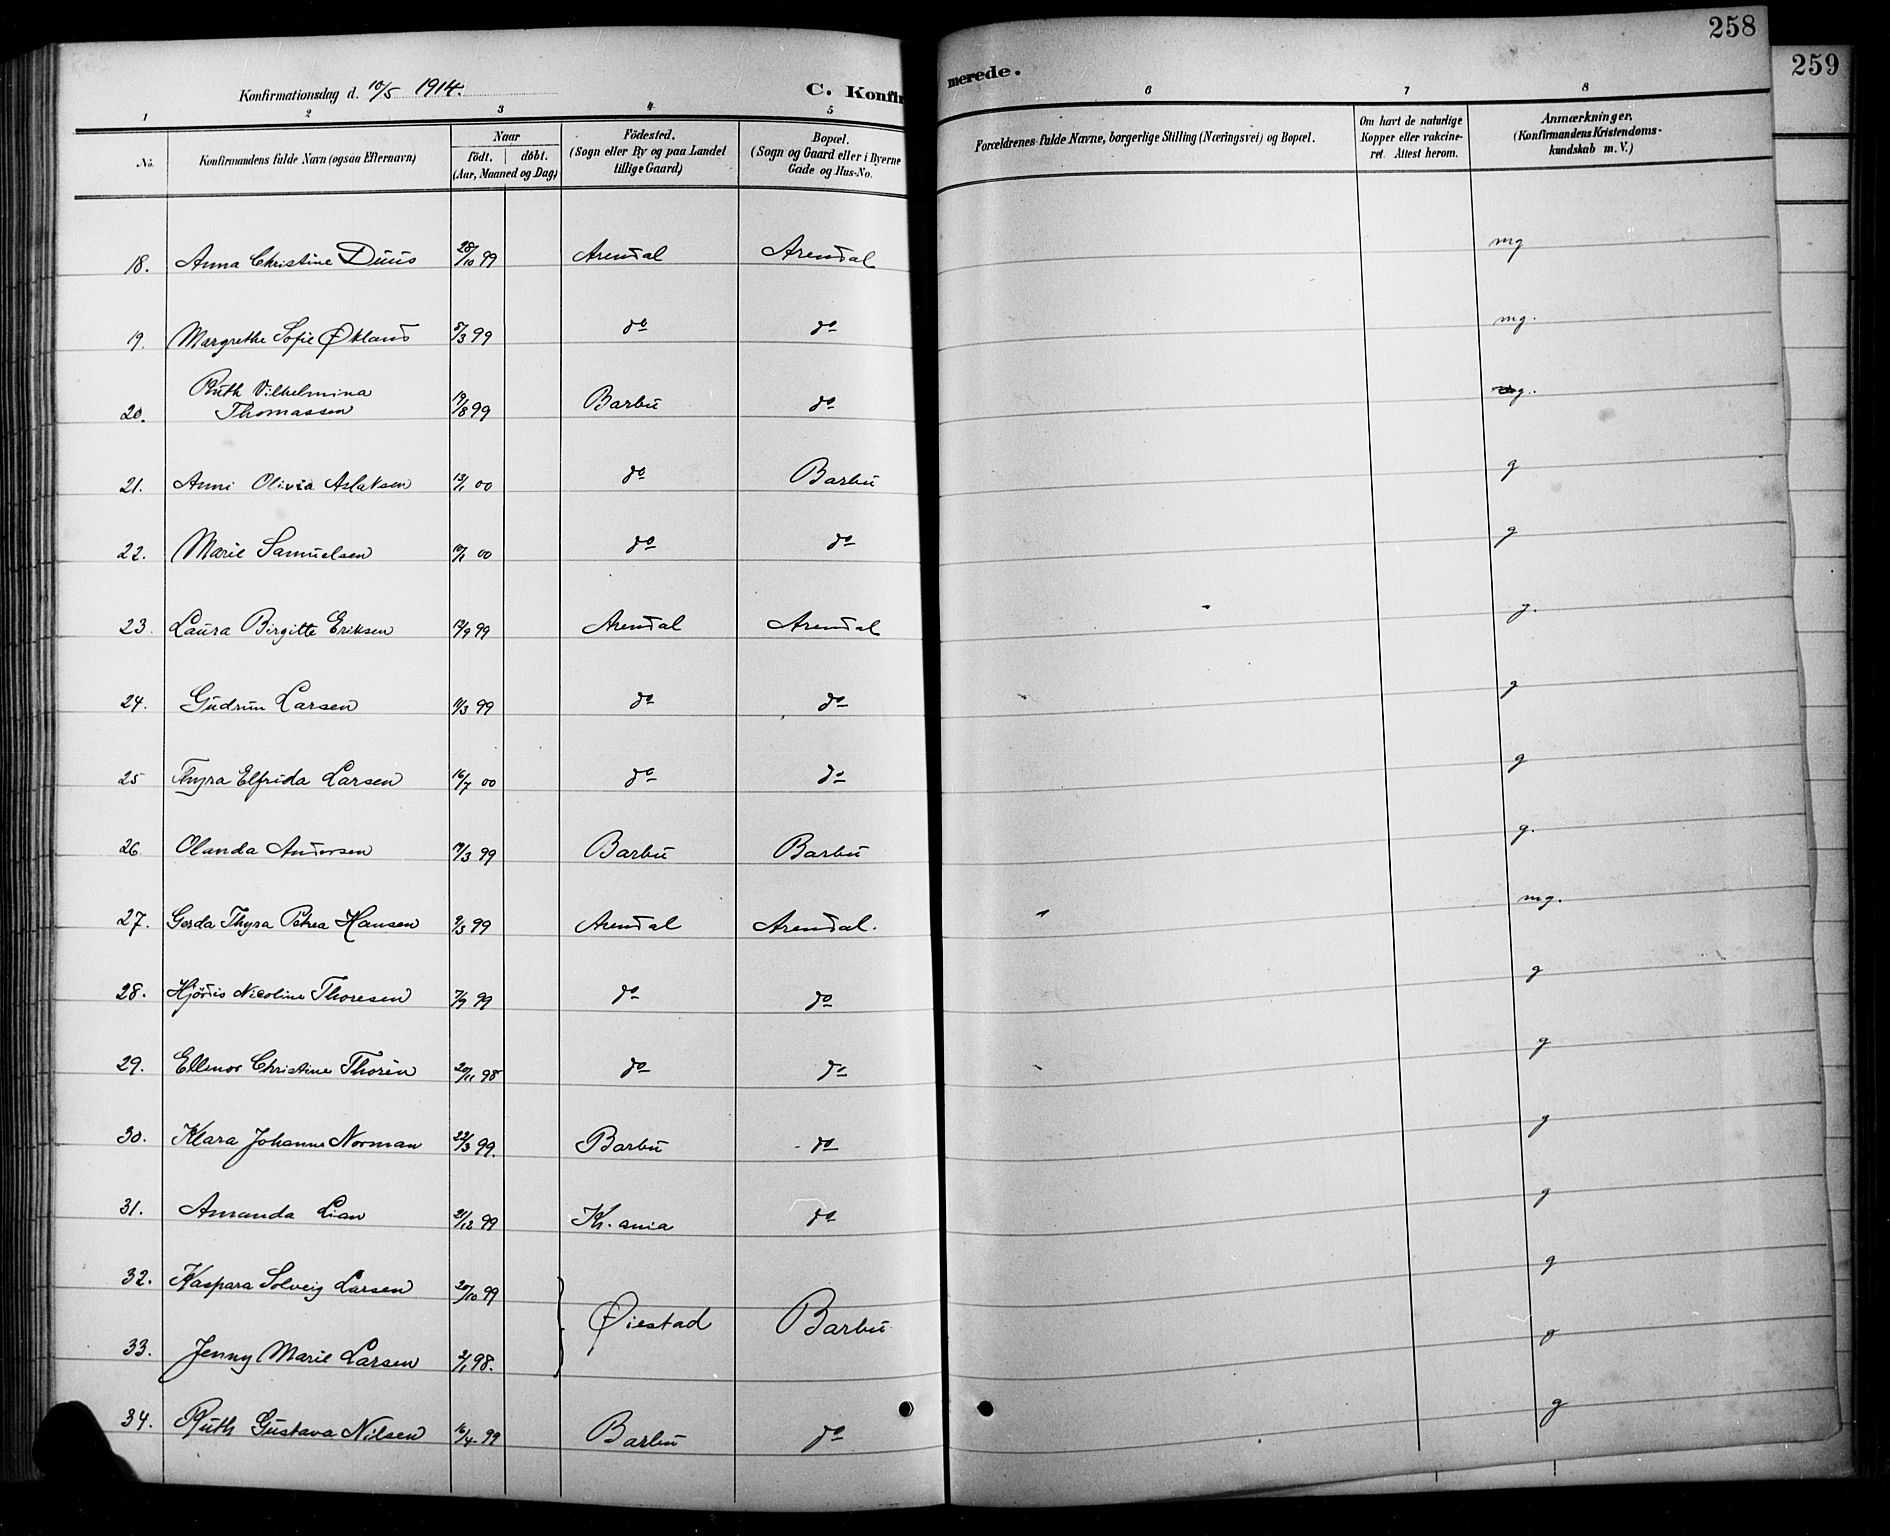 258
259
Konfirmationsdag d. 10/5 1914.
C. Konfir
merede.
1 2 3 4 5 6 7 8
No. Konfirmandens fulde Navn (ogsaa Efternavn) Naar Födt. döbt. (Aar, Maaned og Dag) Födested. (Sogn eller By og paa Landet tillige Gaard) Bopæl. (Sogn og Gaard eller i Byerne Gade og Hus-No. Forældrenes fulde Navne, borgerlige Stilling (Næringsvei) og Bopæl. Om havt de naturlige Kopper eller vakcineret. Attest herom. Anmærkninger. (Konfirmandens Kristendomskundskab m. V.)
18. Anna Christine Duus 28/10 99 Arendal Arendal mg
19. Margrethe Sofie Økland 8/3 99 do do mg.
20. Ruth Vilhelmina
Thomassen 19/8 99 Barbu do g.
21. Anni Olivia Aslaksen 13/1 00 do Barbu g
22. Marie Samuelsen 10/1 00 do do g
23. Laura Birgitte Eriksen 12/9 99 Arendal Arendal g.
24. Gudrun Larsen 11/3 99 do do g
25 Thyra Elfrida Larsen 16/7 00 do do g
26. Olanda Andersen 19/3 99 Barbu Barbu g.
27. Gerda Thyra Petrea Hansen 9/3 99 Arendal Arendal. mg.
28. Hjördis Nicoline Thoresen 7/9 99 do do g
29. Ellenor Christine Thorén 20/11 98 do do g
30. Klara Johanne Norman 22/3 99. Barbu do g
31. Amanda Lian 21/12 99 Kr.ania do g
32. Kaspara Solveig Larsen 20/10 99 } Øiestad Barbu g
33. Jenny Marie Larsen 2/1 98. g
34. Ruth Gustava Nilsen 16/4 99 Barbu do g